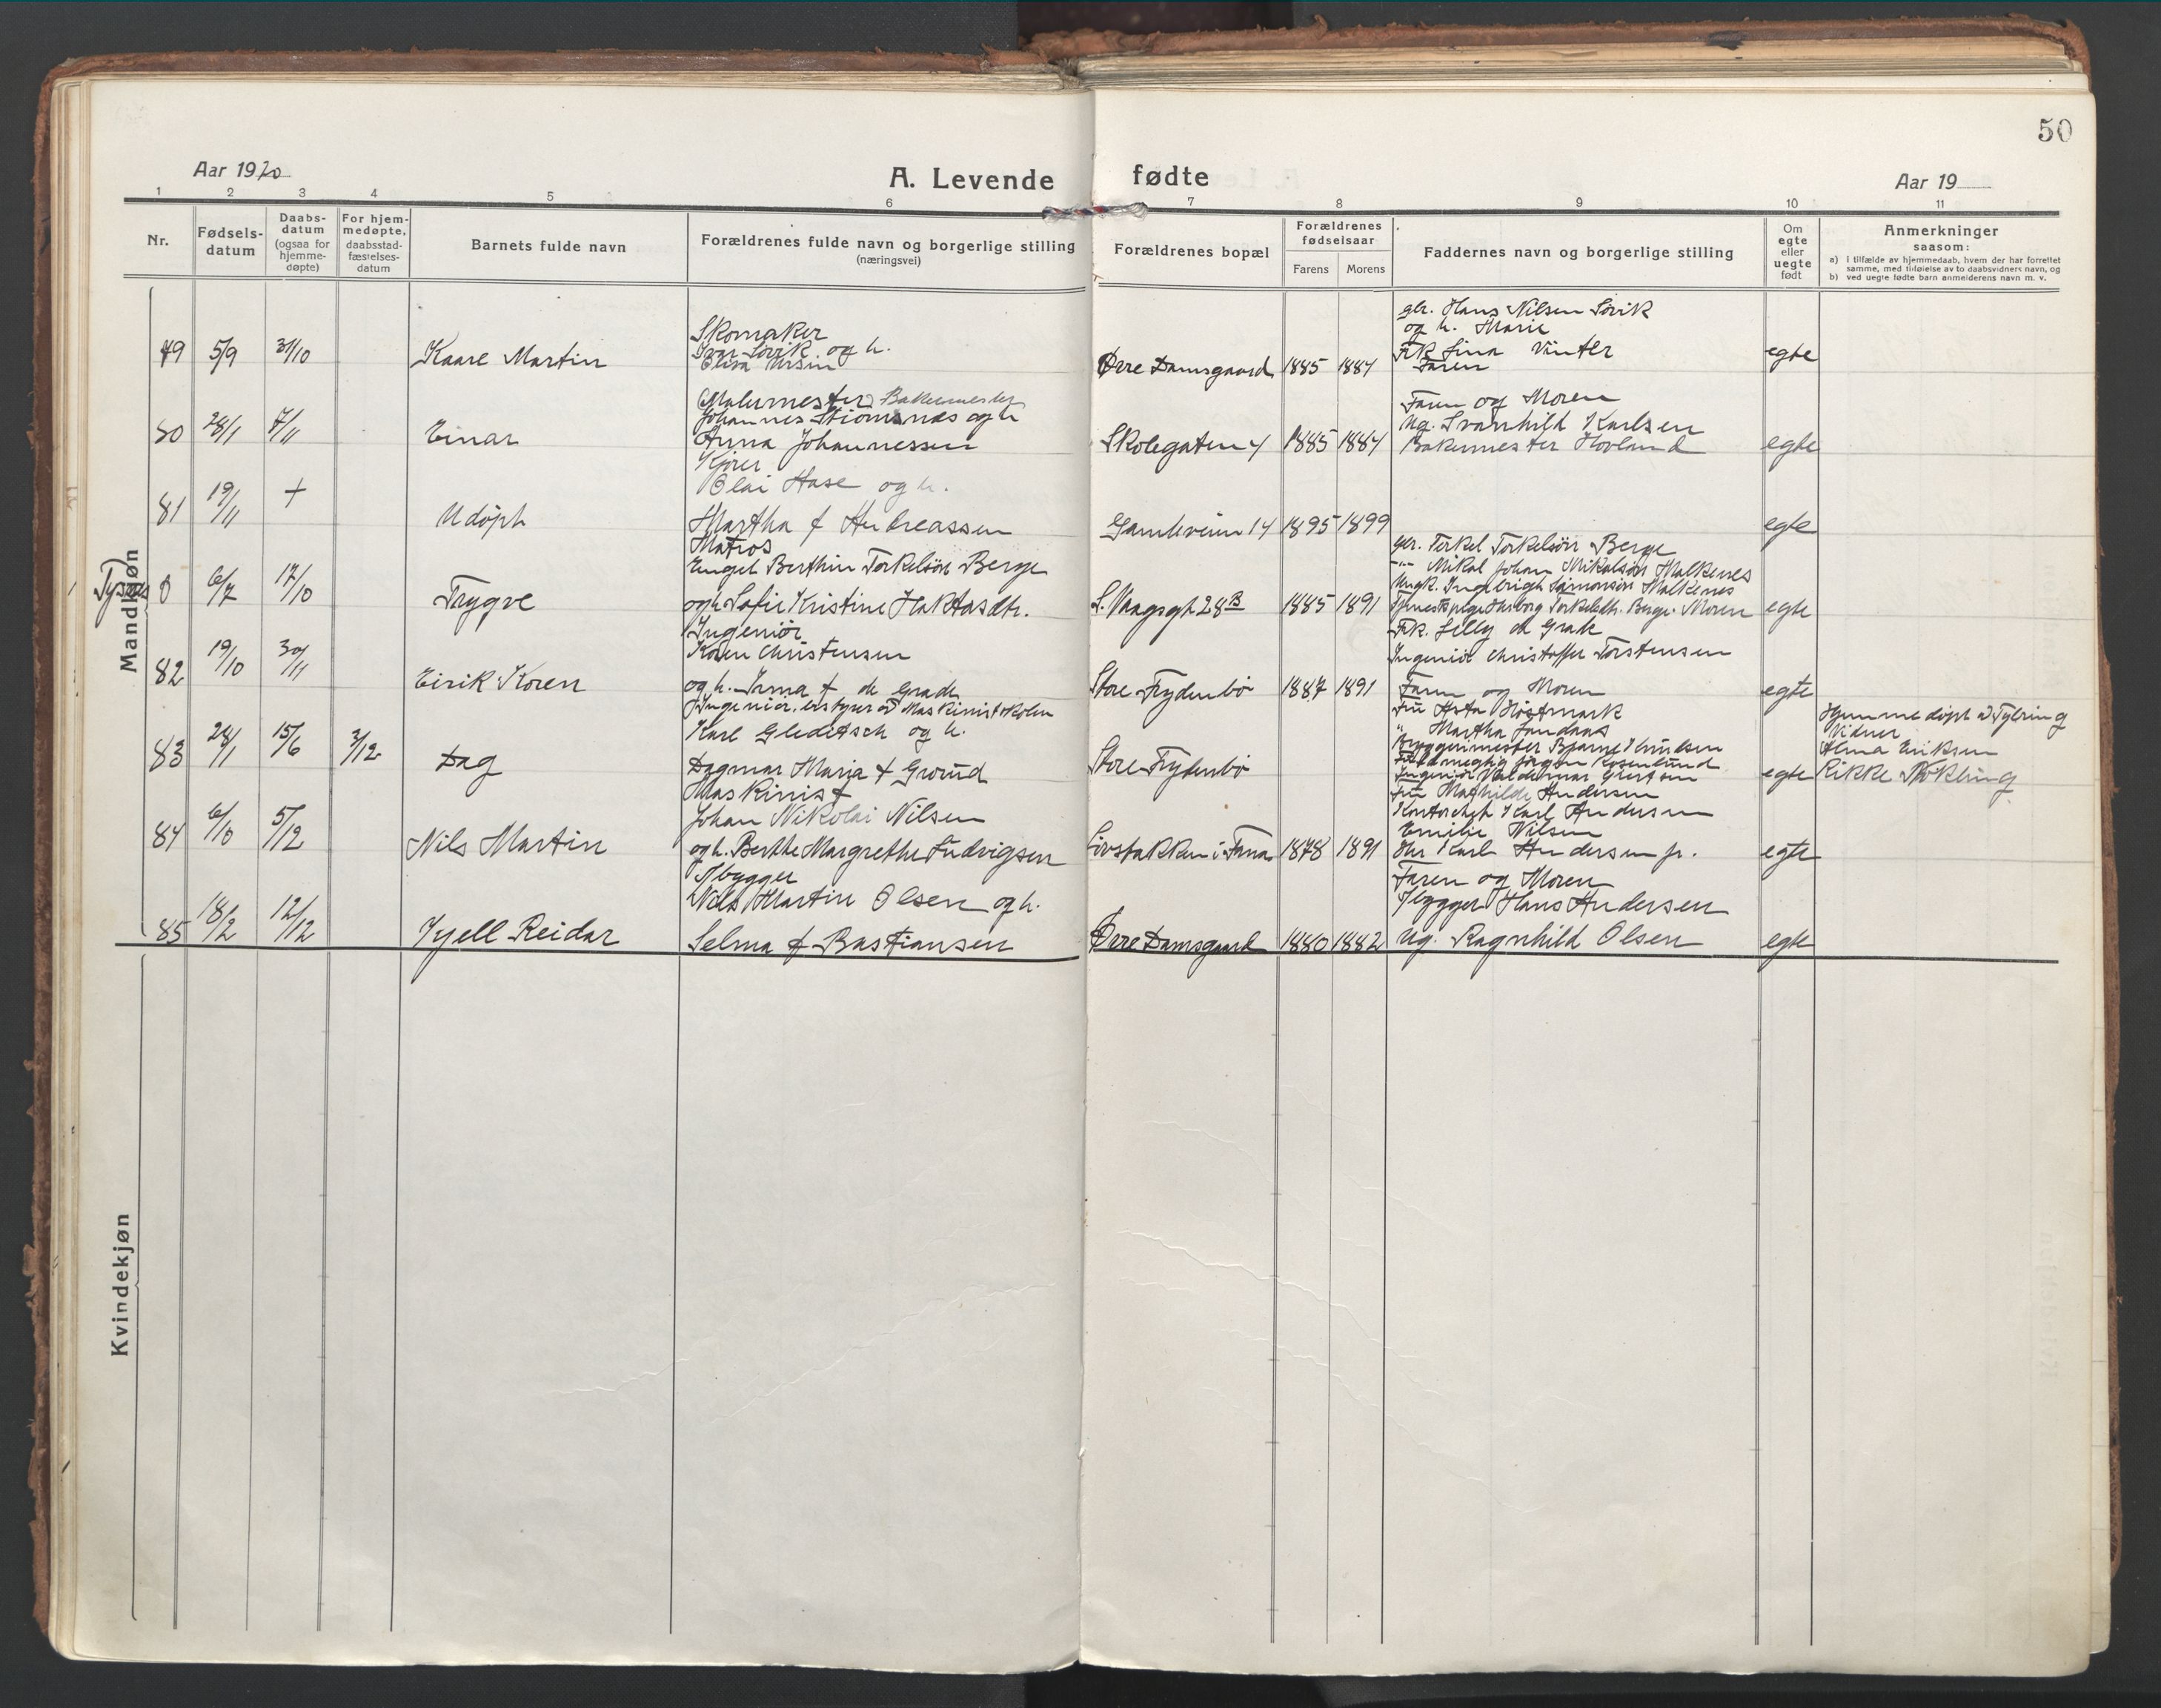 50
Aar 1920
A. Levende fødte
Aar 19
1 2 3 4 5 6 7 8 9 10 11
Nr.
Fødsels-
datum
Daabs-
datum
(ogsaa for
hjemme-
døpte)
For hjem-
medøpte,
daabsstad-
fæstelses-
datum
Barnets fulde navn
Forældrenes fulde navn og borgerlige stilling
(næringsvei)
Forældrenes bopæl
Forældrenes
fødselsaar
Farens Morens
Faddernes navn og borgerlige stilling
Om
egte
eller
uegte
født
Anmerkninger
saasom:
a) i tilfælde av hjemmedaab, hvem der har forrettet
samme, med tilføielse av to daabsvidners navn, og
b) ved uegte fødte barn anmelderens navn m. v.
Mandkjøn
79 5/9 31/10
Kaare Martin
Skomaker
Ivar Sörvik og h.
Elisa Ursin
Övre Damsgaard 1885 1887
gbr. Hans Nilsen Sörvik
og h. Marie
Frk Lina Vinter
Faren
egte
80 28/1 7/11
Einar
(Malermester) Bakermester
Johannes Stiomsnæs og h
Anna Johannessen
Skolegaten 4 1885 1884
Faren og Moren
Ug. Svanhild Karlsen
Bakermester Hovland
egte
81 19/11 +
Udöpt
Kjörer
Olai Hase og h.
Martha f Andreassen
Gamleveien 14 1895 1899
egte
Tysnes
0 6/7 17/10
Trygve
Matros
Engel Berthin Torkelsön Berge
og h Sofie Kristine Haktasdtr.
S. Vaagsgt 28 B 1885 1891
gbr. Terkel Torkelsön Berge
-"- Mikal Johan Mikalsön Malkenes
Ungk. Ingebrigt Simonsön Malkenes
Tjenestepige Hasborg Torkelsdtr. Berge. Moren
egte
82 19/10 30/11
Eirik Koren
Ingeniör
Koren Christensen
og h. Irma f. de Grade
Store Frydenbö 1887 1891
Frk. Lilly de Grade
Ingeniör Christoffer Torstensen
Faren og Moren
egte
83 28/1 15/6 3/12
Dag
Ingeniör, bestyrer av Maskinistskolen
Karl Gleditsch og h.
Dagmar Maria f Grörud
Store Frydenbö
Fru Asta Höstmark
" Martha Sandaas
Bryggerimester Bjarne Knudsen
Jörgen Rosenlund
Ingeniör Valdemar Giertsen
egte
Hjemmedöpt av Tybring
Vidner
Alma Eriksen
Rikke Thokling
84 6/10 5/12
Nils Martin
Maskinist
Johan Nikolai Nilsen
og h. Berthe Margrethe Ludvigsen
Lövstakken i Fana 1878 1891
Fru Mathilde Andersen
Kontorchef Karl Andersen
Emilie Nilsen
Hr Karl Andersen jr.
egte
85 18/2 12/12
Kjell Reidar
Nils Martin Olsen og h.
Selma f Bastiansen
Övre Damsgaard 1880 1882
Faren og Moren
Hans Andersen
Ug. Ragnhild Olsen
egte
Kvindekjøn